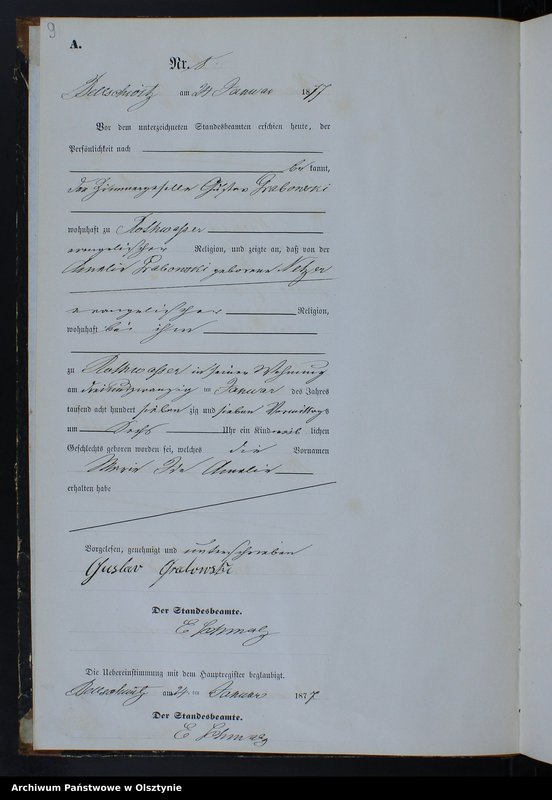 9
A.
Nr. 8
Bellschwitz am 24 Januar 1877
Vor dem unterzeichneten Standesbeamten erschien heute, der
Persönlichkeit nach
bekannt,
der Zimmergeselle Gustav Grabowski
wohnhaft zu Rothwasser
evangelischer Religion, und zeigte an, daß von der
Amalie Grabowski geborene
evangelischer Religion,
wohnhaft bei ihm
zu Rothwasser in seiner Wohnung
am dreiundzwanzig ten Januar des Jahres
tausend acht hundert sieben zig und sieben Vormittags
um sechs Uhr ein Kind weib lichen
Geschlechts geboren worden sei, welches die Vornamen
Marie Ida Amalie
erhalten habe
Vorgelesen, genehmigt und unterschrieben
Gustav Grabowski
Der Standesbeamte.
E Schmalz
Die Uebereinstimmung mit dem Hauptregister beglaubigt.
Bellschwitz am 24 ten Januar 1877
Der Standesbeamte.
E Schmalz
Archiwum Państwowe w Olsztynie